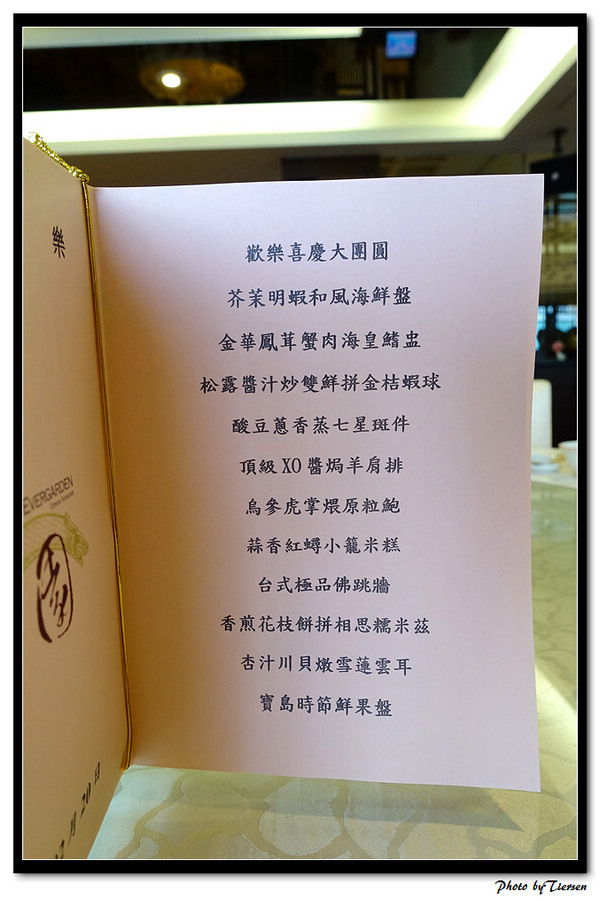 樂
EVERGARDEN
園
月 20 日
歡樂喜慶大團圓
芥茉明蝦和風海鮮盤
金華鳳茸蟹肉海皇鰭盅
松露醬汁炒雙鮮拼金桔蝦球
酸豆蔥香蒸七星斑件
頂級XO醬焗羊肩排
烏參虎掌煨原粒鮑
蒜香紅蟳小籠米糕
台式極品佛跳牆
香煎花枝餅拼相思糯米茲
杏汁川貝燉雪蓮雲耳
寶島時節鮮果盤
Photo by Tiersen